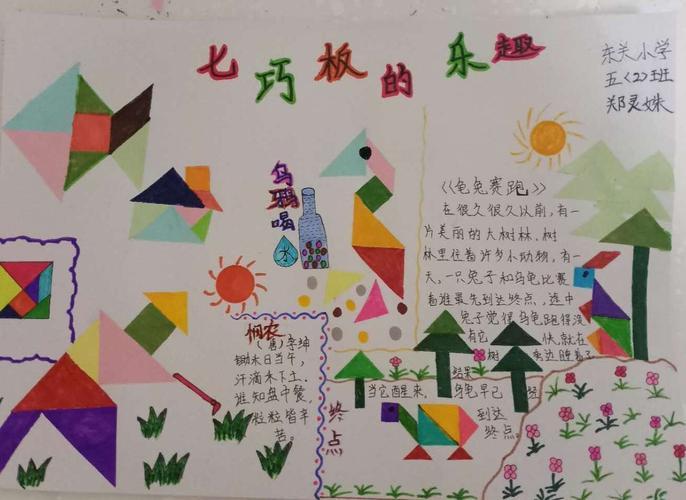 七巧板的乐趣
东关小学
五(2)班
郑灵姝
乌鸦喝
水
悯农
(唐)李绅
锄禾日当午,
汗滴禾下土。
谁知盘中餐,
粒粒皆辛
苦。
《龟兔赛跑》
在很久很久以前,有一
片美丽的大树林,树
林里住着许多小动物,有一
天,一只兔子和乌龟比赛
看谁最先到达终点,途中
兔子觉得乌龟跑得没
有它 快,就在
树 旁边睡着了
结果
当它醒来, 乌龟早已 经
到达
终点。
终点